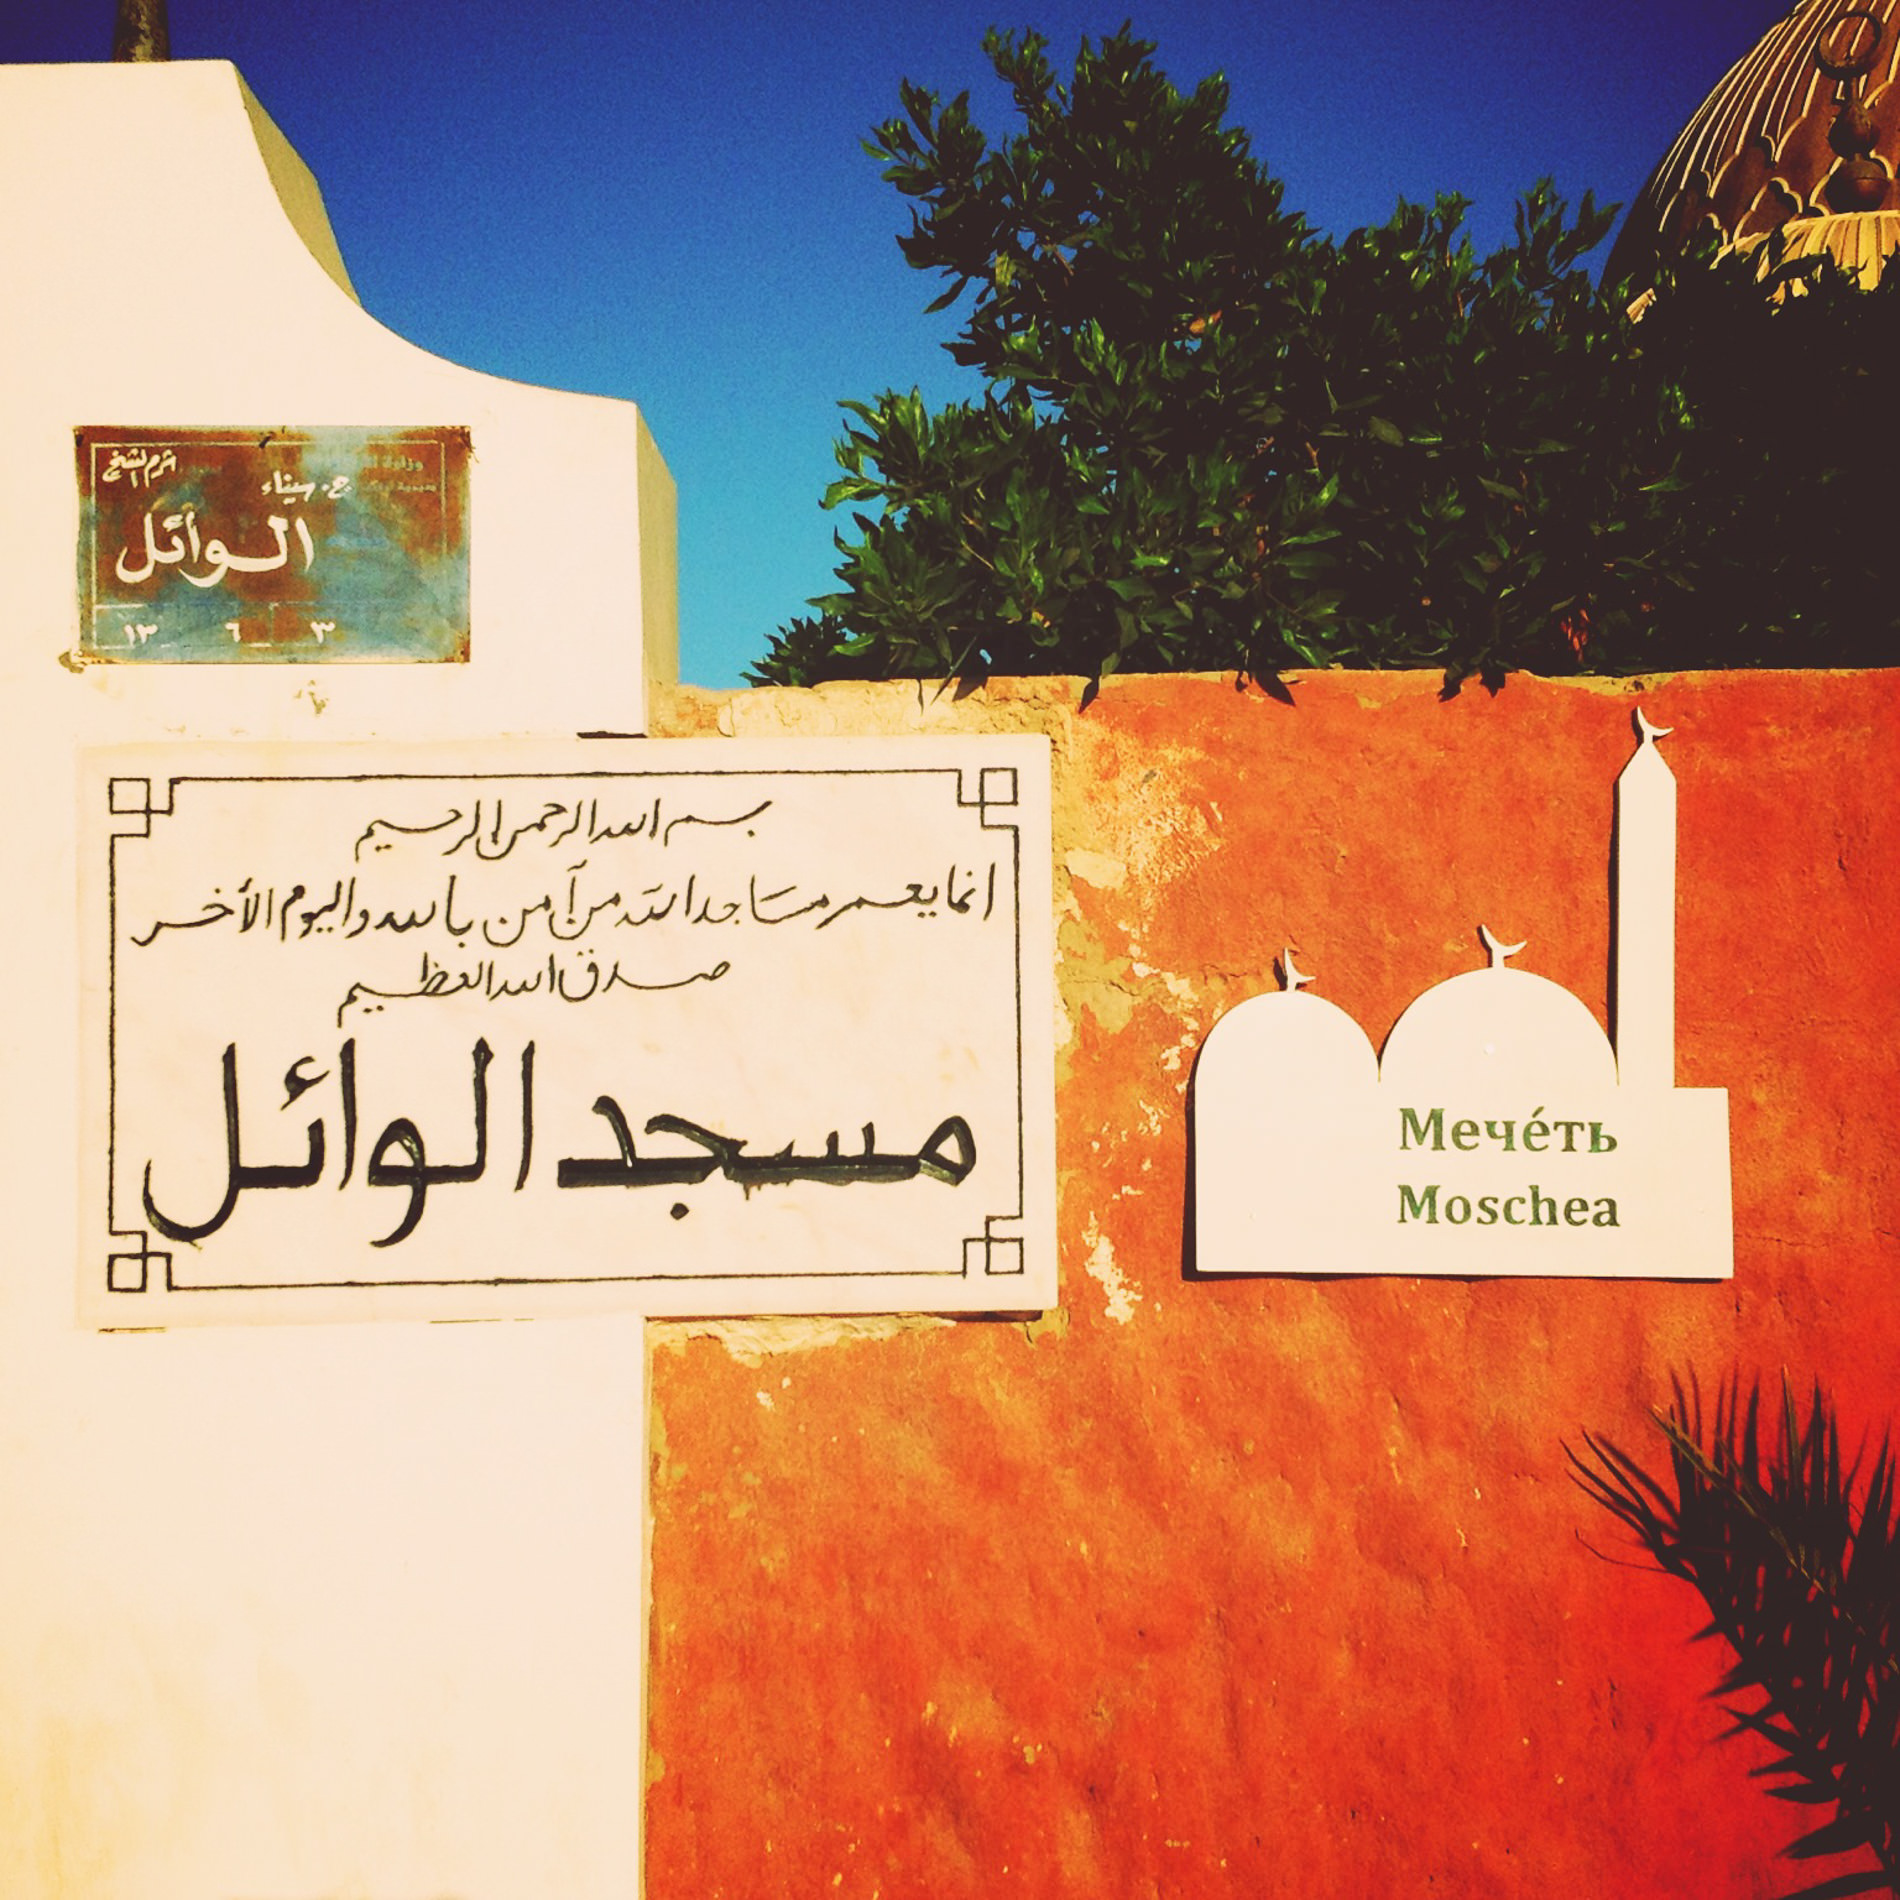 شرم الشيخ
ج. سيناء
الوائل
١٣ ٦ ٣
بسم الله الرحمن الرحيم
انما يعمر مساجد الله من آمن بالله واليوم الأخر
صدق الله العظيم
مسجد الوائل
Мече́ть
Moschea